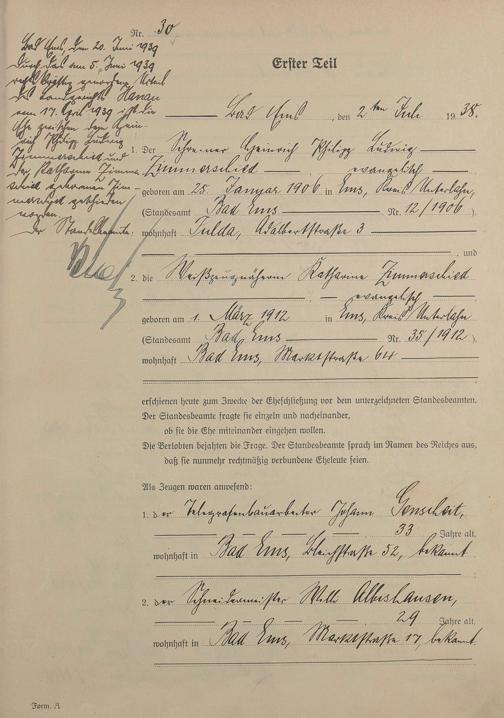 Nr. 30
Bad Ems, den 20. Juni 1939
Durch das am 5. Juni 1939
rechtskräftig gewordene Urteil
des Landgerichts Hanau
vom 17. April 1939 ist die
Ehe zwischen dem Hein-
rich Philipp Ludwig
Zimmerschied und
der Katharina Zimmer-
schied geborenen Zim-
merschied geschieden
worden.
Der Standesbeamte:
Erster Teil
Bad Ems, den 2ten Juli 1938.
1. Der Schreiner Heinrich Philipp Ludwig
Zimmerschied — evangelisch
geboren am 25. Januar 1906 in Ems, Kreis Unterlahn,
(Standesamt Bad Ems Nr. 12/1906)
wohnhaft Fulda, Adalbertstraße 3
und
2. die Weißzeugnäherin Katharine Zimmerschied
— evangelisch
geboren am 1. März 1912 in Ems, Kreis Unterlahn
(Standesamt Bad Ems Nr. 35/1912)
wohnhaft Bad Ems, Marktstraße 64
erschienen heute zum Zwecke der Eheschließung vor dem unterzeichneten Standesbeamten.
Der Standesbeamte fragte sie einzeln und nacheinander,
ob sie die Ehe miteinander eingehen wollen.
Die Verlobten bejahten die Frage. Der Standesbeamte sprach im Namen des Reiches aus,
daß sie nunmehr rechtmäßig verbundene Eheleute seien.
Als Zeugen waren anwesend:
1. der Telegrafenbauarbeiter Johann
33 Jahre alt,
wohnhaft in Bad Ems, Bleichstraße 52, bekannt
2. der Schneidermeister Willi Albishausen,
29 Jahre alt,
wohnhaft in Bad Ems, Marktstraße 17, bekannt
Form. A